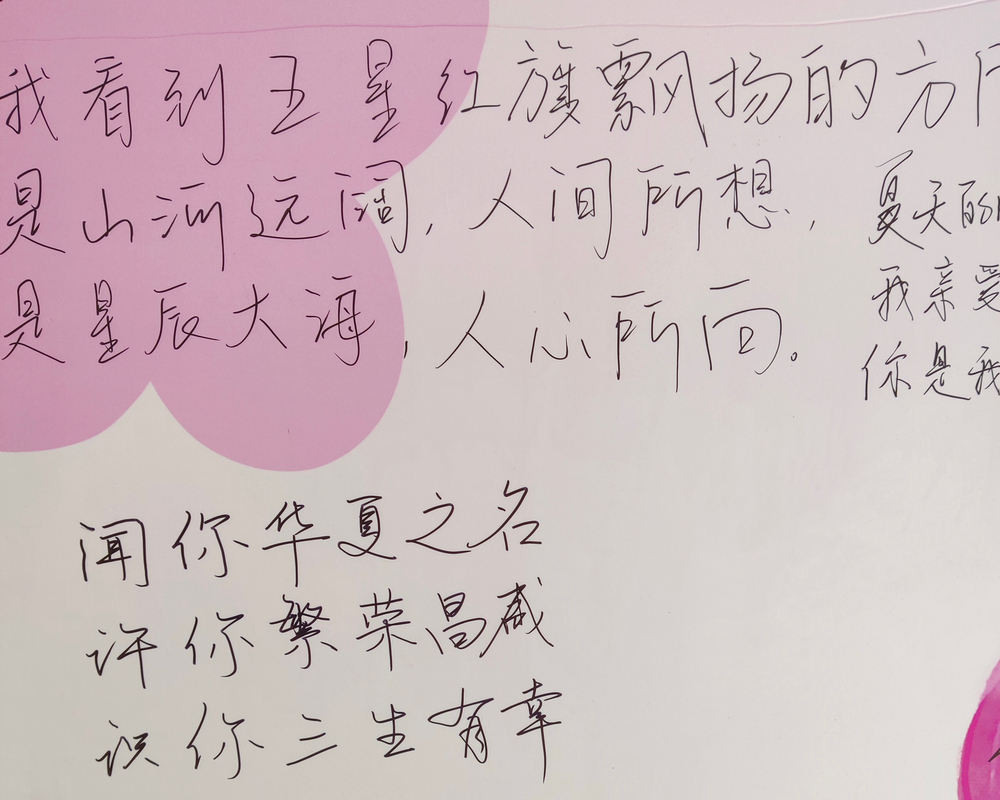 我看到五星红旗飘扬的方
是山河远阔,人间所想,
是星辰大海,人心所向。
夏天的
我亲爱
你是我
闻你华夏之名
许你繁荣昌盛
识你三生有幸